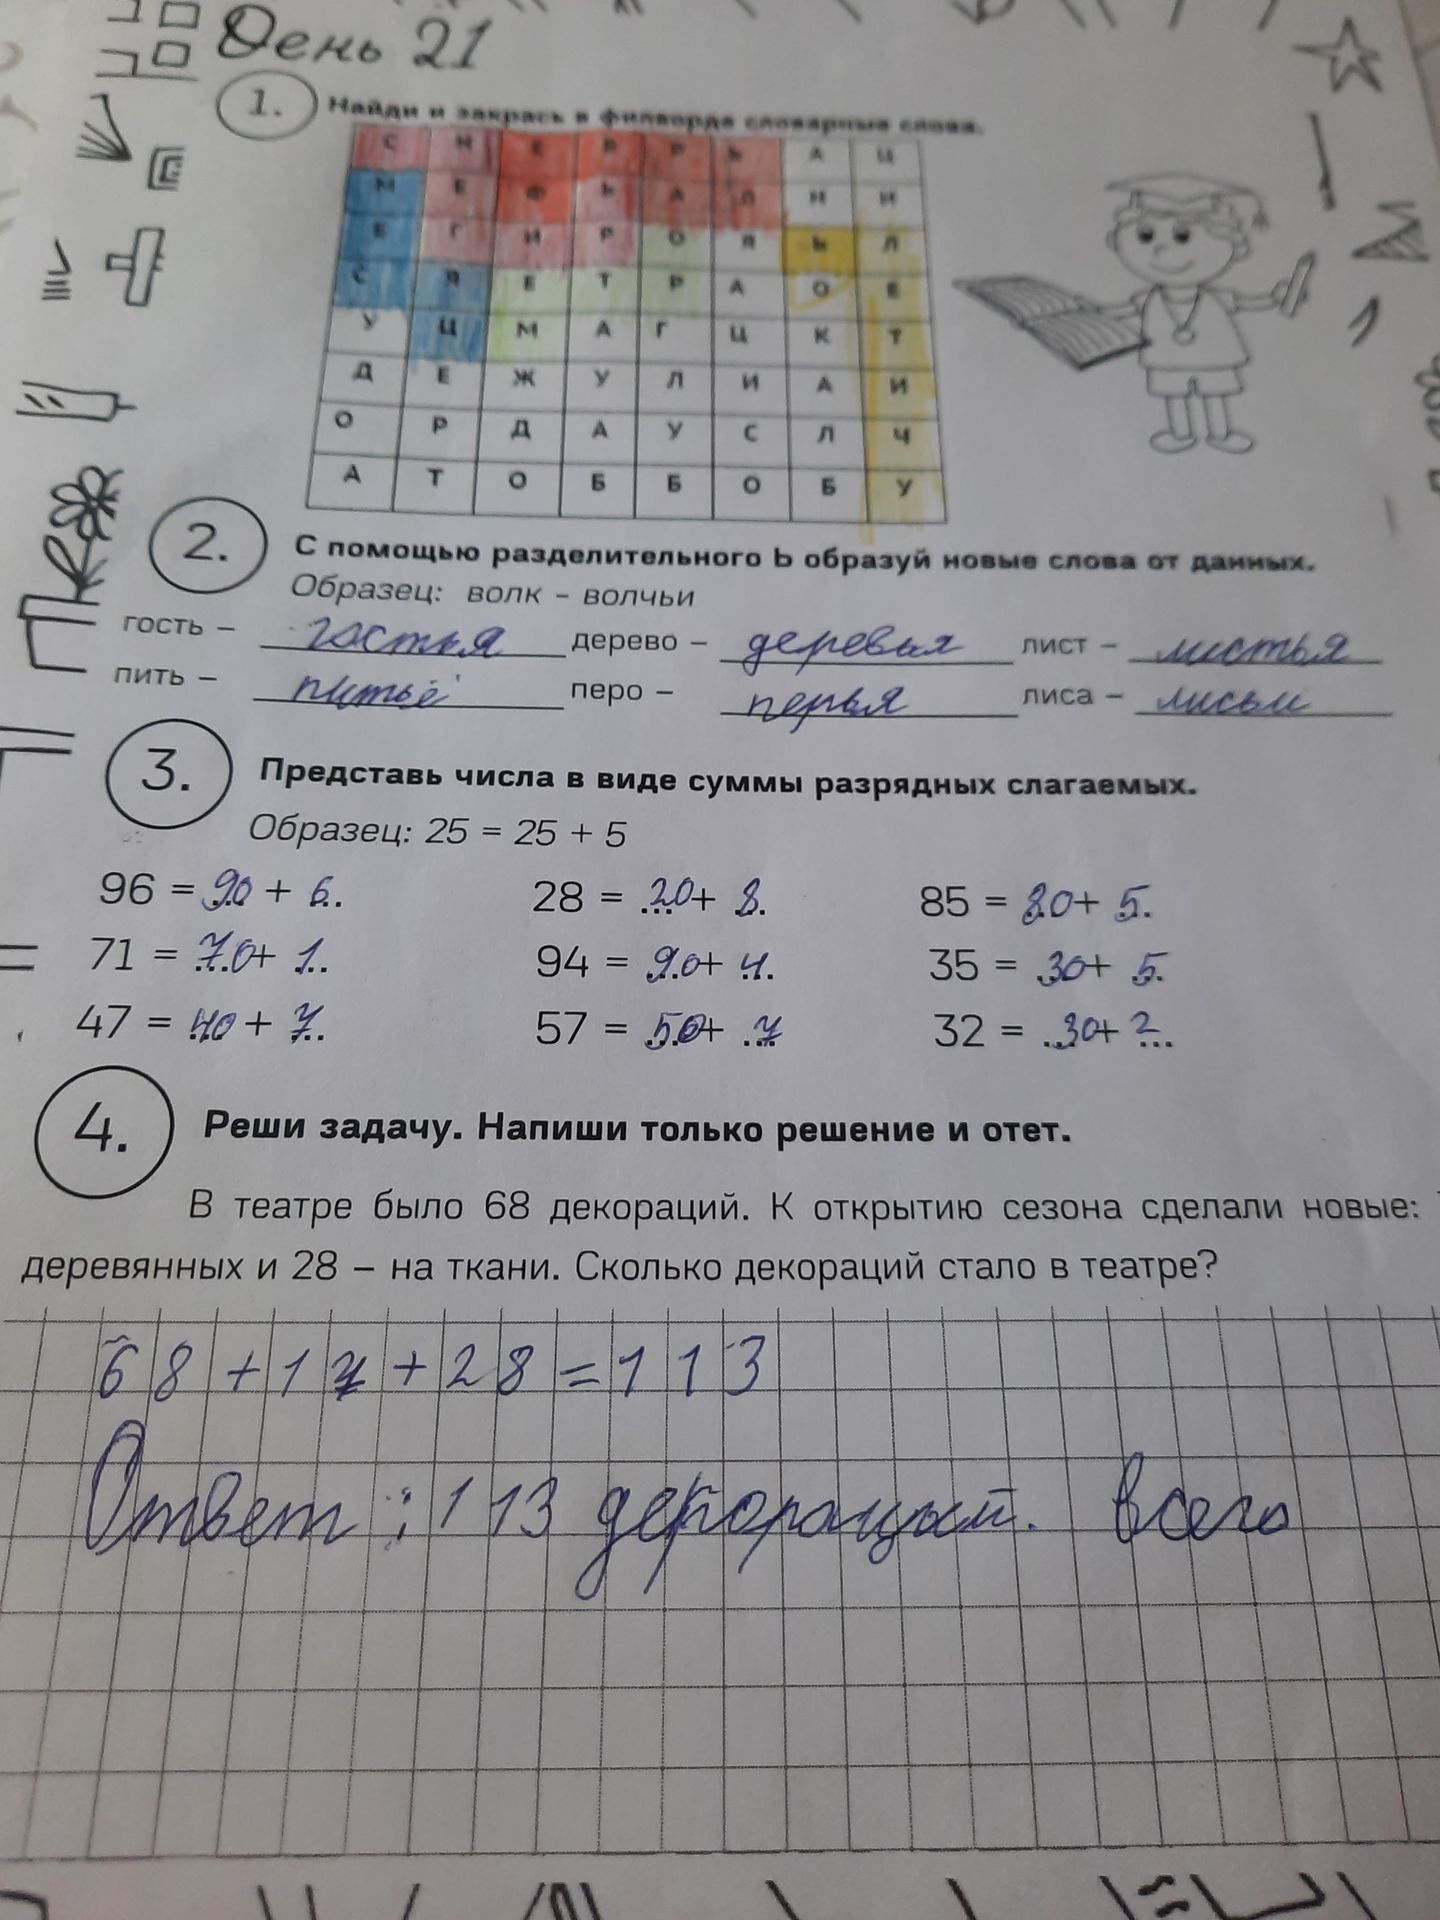 День 21
1. Найди и закрась в филворде словарные слова.
С Н Е В Р Ь А Ц
М Е Ф Ь А Л Н И
Е Г И Р О Я Ь Л
С Я Е Т Р А О Е
У Ц М А Г Ц К Т
Д Е Ж У Л И А И
О Р Д А У С Л Ч
А Т О Б Б О Б У
2. С помощью разделительного Ь образуй новые слова от данных.
Образец: волк – волчьи
гость – гостья дерево – деревья лист – листья
пить – питьё перо – перья лиса – лисьи
3. Представь числа в виде суммы разрядных слагаемых.
Образец: 25 = 25 + 5
96 = 90 + 6. 28 = 20+ 8. 85 = 80+ 5.
71 = 70+ 1. 94 = 90+ 4. 35 = 30+ 5.
47 = 40 + 7. 57 = 50+ 7 32 = 30+ 2
4. Реши задачу. Напиши только решение и отет.
В театре было 68 декораций. К открытию сезона сделали новые:
деревянных и 28 – на ткани. Сколько декораций стало в театре?
68+17+28=113
Ответ: 113 декораций. всего